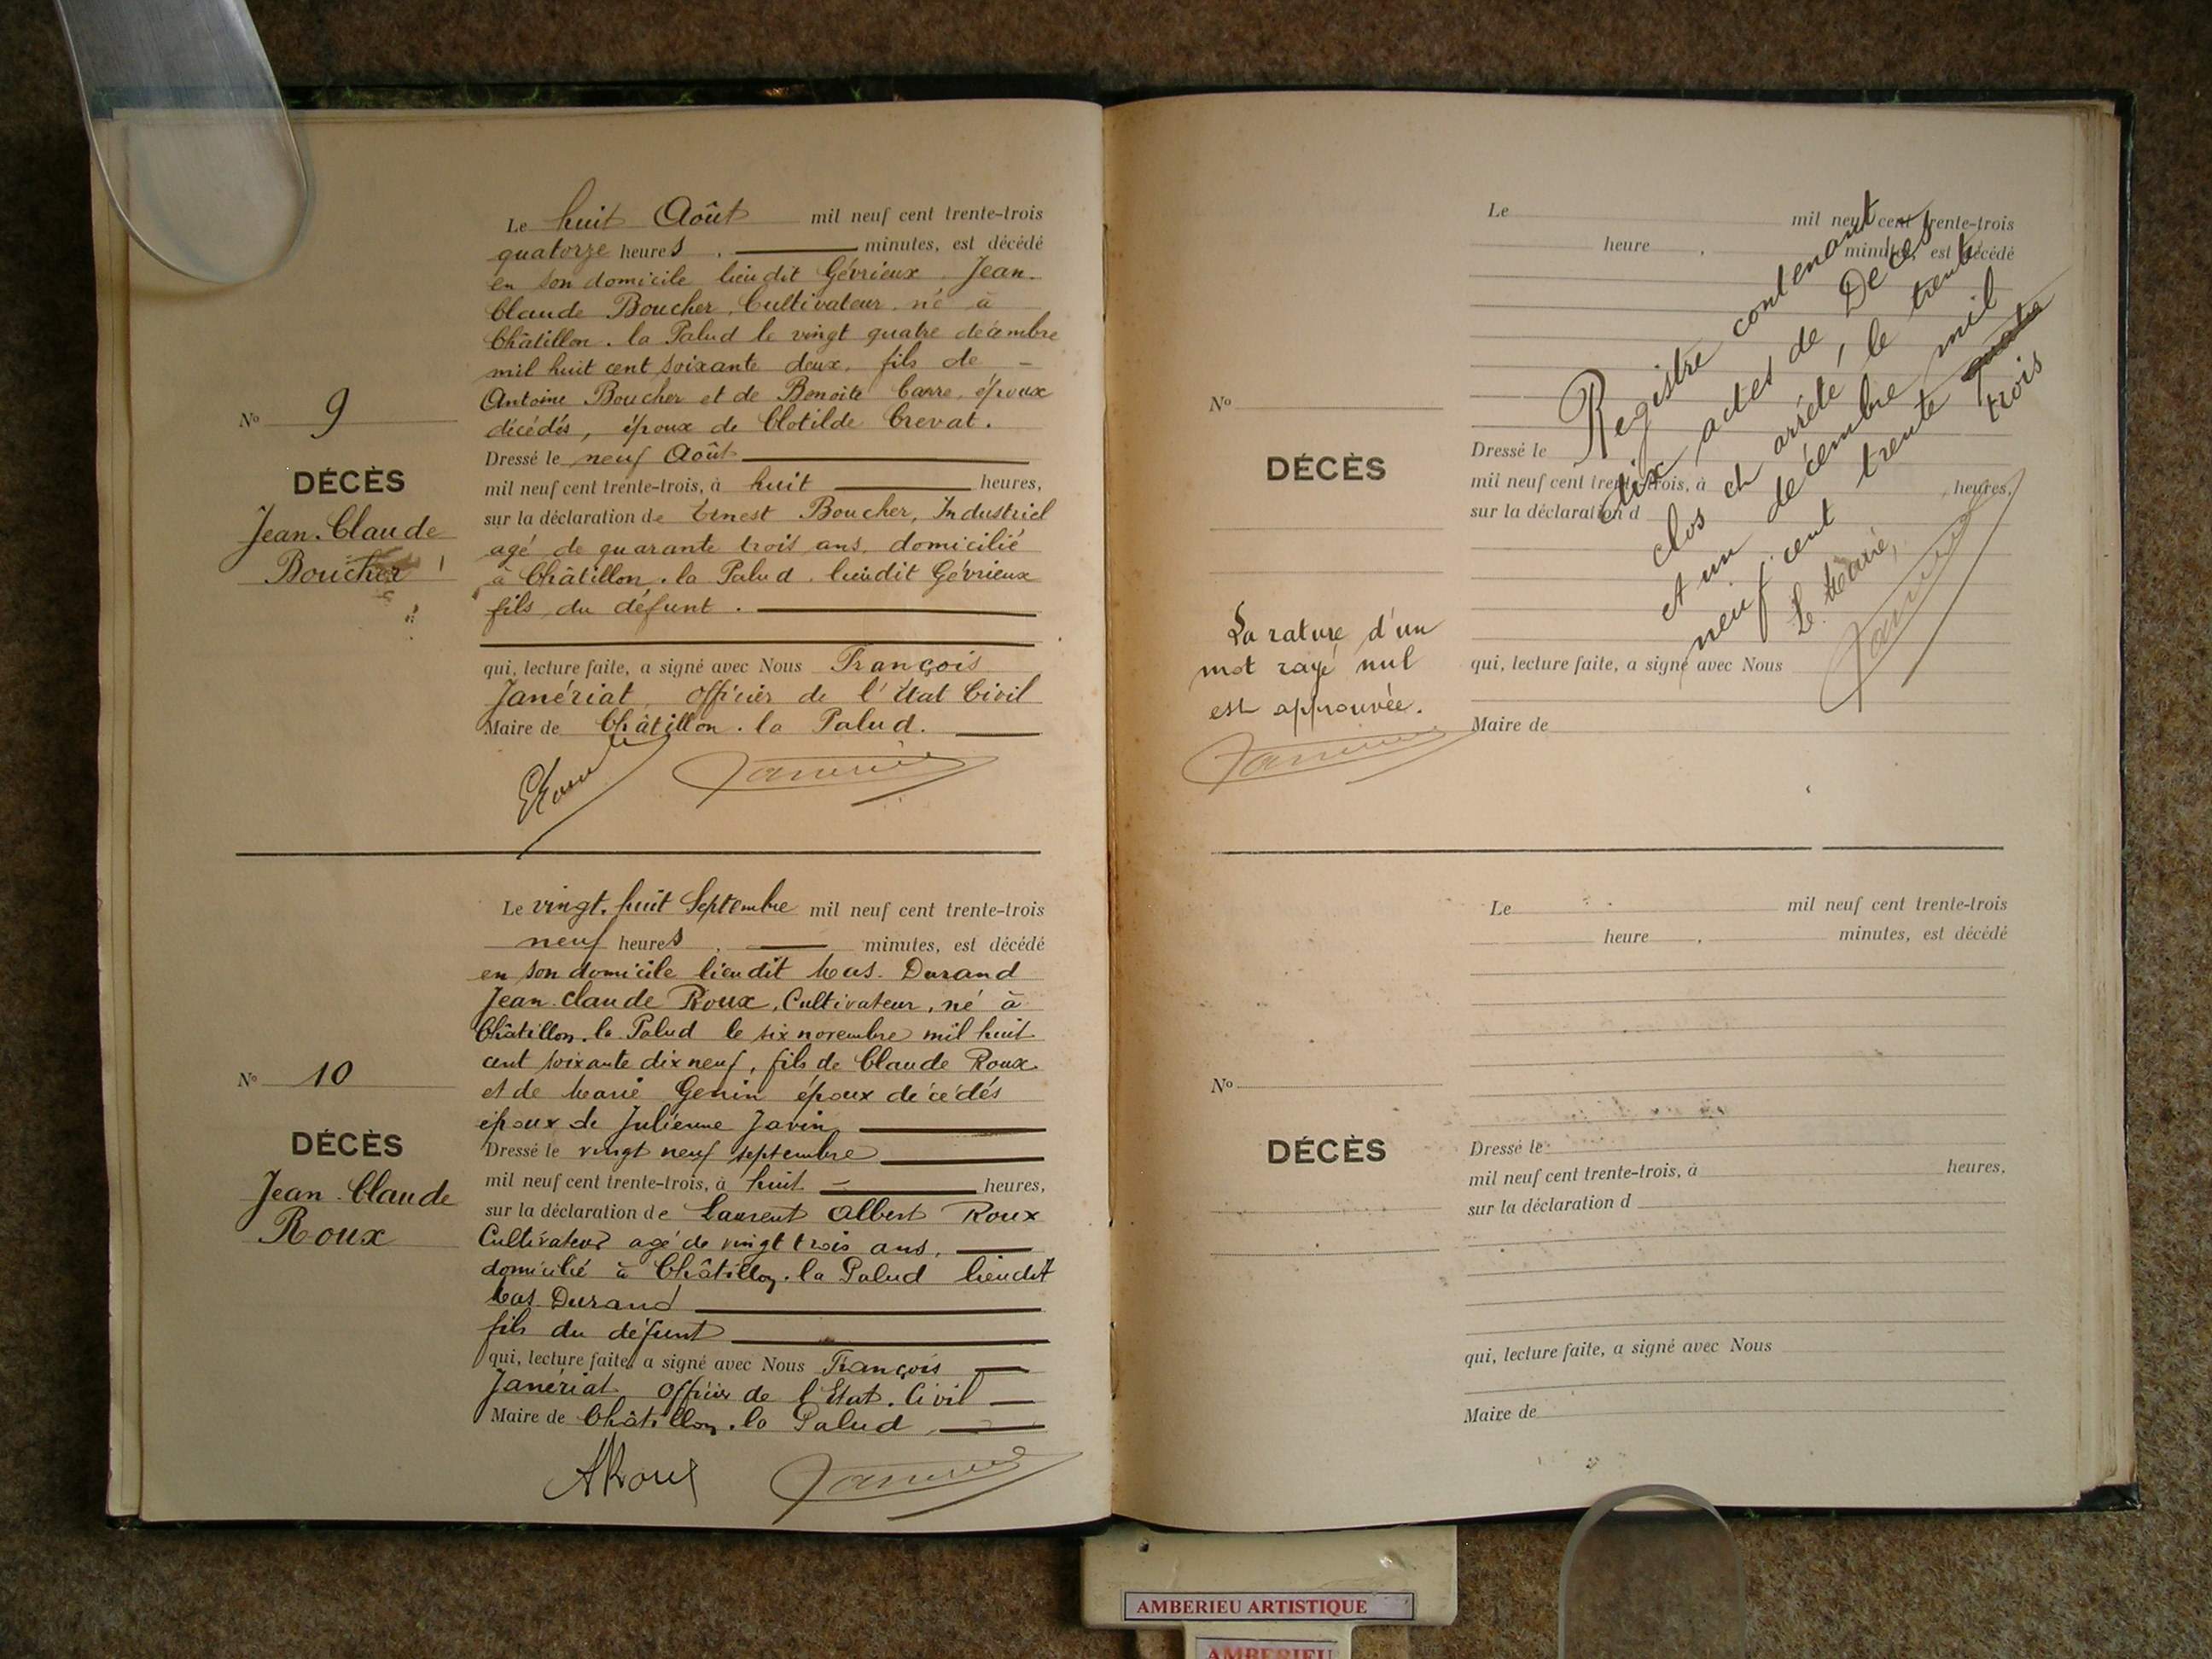 Le huit Août mil neuf cent trente-trois
quatorze heures, minutes, est décédé
en son domicile lieudit Gévrieux Jean-
Claude Boucher, Cultivateur, né à
Châtillon-la Palud le vingt quatre décembre
mil huit cent soixante deux, fils de -
Antoine Boucher et de Benoite Carre, époux
décédés, époux de Clotilde Crevat.
Dressé le neuf Août
mil neuf cent trente-trois, à huit heures,
sur la déclaration de Ernest Boucher, Industriel
agé de quarante trois ans, domicilié
à Châtillon-la Palud, lieudit Gévrieux
fils du défunt.
qui, lecture faite, a signé avec Nous François
Janériat, officier de l'Etat Civil
Maire de Châtillon-la Palud.
No 9
DÉCÈS
Jean-Claude
Boucher
Le vingt-huit Septembre mil neuf cent trente-trois
neuf heures, minutes, est décédé
en son domicile lieudit Mas-Durand
Jean-Claude Roux, Cultivateur, né à
Châtillon-la Palud le six novembre mil huit
cent soixante dix neuf, fils de Claude Roux
et de Marie Genin époux décédés
époux de Julienne Javin
Dressé le vingt neuf septembre
mil neuf cent trente-trois, à huit heures,
sur la déclaration de Laurent Albert Roux
Cultivateur agé de vingt trois ans,
domicilié à Châtillon-la Palud lieudit
Mas-Durand
fils du défunt
qui, lecture faite, a signé avec Nous François
Janériat officier de l'Etat-Civil
Maire de Châtillon-la Palud
ARoux
No 10
DÉCÈS
Jean-Claude
Roux
Le mil neuf cent trente-trois
heure, minutes, est décédé
No
DÉCÈS
Dressé le
mil neuf cent trente-trois, à heures,
sur la déclaration d
qui, lecture faite, a signé avec Nous
Maire de
Registre contenant
dix actes de Décès
clos et arrêté, le trente
et un décembre mil
neuf cent trente quatre
trois
Le Maire,
La rature d'un
mot rayé nul
est approuvée.
Le mil neuf cent trente-trois
heure, minutes, est décédé
No
DÉCÈS
Dressé le
mil neuf cent trente-trois, à heures,
sur la déclaration d
qui, lecture faite, a signé avec Nous
Maire de
AMBERIEU ARTISTIQUE
AMBERIEU